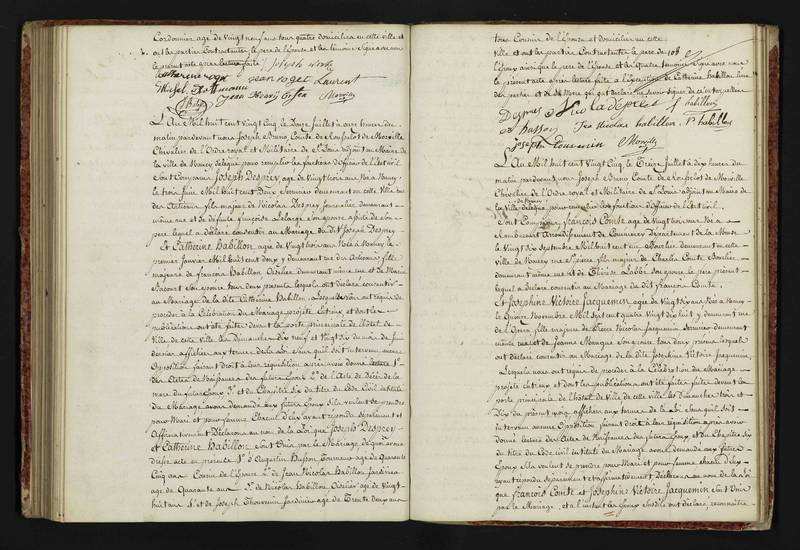 Cordonnier agé de Vingt neuf ans tous quatre domiciliés en cette ville et
ont les parties Contractantes, le pere de l'épouse et les témoins signé avec nous
le présent acte après lecture faite
Joseph
jean roget Laurent
Michel Hottmann
Jean Henry Morville
L'An Mil huit cent Vingt Cinq le Douze Juillet à onze heures du
matin pardevant nous Joseph Bruno, Comte de Morville
Chevalier de l'Ordre royal et Militaire de St Louis adjoint au Maire de
la Ville de Nancy délégué pour remplir les fonctions d'officier de l'Etat civil
Sont Comparus Joseph Desprey agé de Vingt trois ans Né à Nancy
le trois Juin Mil huit cent Deux Serrurier demeurant en cette Ville rue
des Artisans fils majeur de Nicolas Desprey Journalier, demeurant
même rue et de défunte françoise son épouse assisté de son
pere lequel a déclaré consentir au Mariage dudit Joseph Desprey
Et Catherine Babillon, agée de Vingt trois ans Née à Nancy le
premier Janvier Mil huit cent deux y demeurant rue des Artisans fille
majeure de francois Babillon Oiselier demeurant même rue et de Marie
Bacourt son épouse tous deux présents lesquels ont déclaré consentir
au Mariage de la dite Catherine Babillon, Lesquels nous ont requis de
procéder à la Célébration du Mariage projeté entr'eux et dont les
publications ont été faites devant la porte principale de l'hotel de
Ville de cette ville les dimanches Dix neuf et Vingt six du mois de Juin
dernier affichées aux termes de la Loi sans qu'il soit intervenu aucune
Opposition faisant droit à leur réquisition après avoir donné lecture 1°
des Actes de Naissance des futurs Epoux 2° de l'Acte de Décès de la
mere du futur Epoux 3° et du Chapitre Six du titre du Code Civil intitulé
du Mariage avons demandé aux futurs Epoux s'ils veulent se prendre
pour Mari et pour femme Chacun d'eux ayant répondu séparément et
Affirmativement Déclarons au nom de la Loi que Joseph Desprey
et Catherine Babillon sont Unis par le Mariage, de quoi avons
dressé acte en présence 1° d'Augustin Husson Tourneur agé de Quarante
Cinq ans Cousin de l'Epouse 2° de Jean Nicolas Babillon Jardinier
agé de Quarante ans 3° de Nicolas Babillon Oiselier agé de Vingt
huit ans 4° et de Joseph Thouvenin Jardinier agé de Trente deux ans
tous Cousins de l'épouse et domiciliés en cette
ville et ont les parties Contractantes le pere de
l'Epoux ainsi que le pere de l'épouse et les quatre témoins signé avec nous
le présent acte après lecture faite à l'exception de Catherine Babillon l'une
des parties et de sa Mere qui ont déclaré ne savoir signer de ce interpellées
108
Desprey Nicola despret f babillon
a husson Jea Nicolas babillon N babillon
joseph thouvenin Morville
L'An Mil huit cent Vingt Cinq, le Treize Juillet à dix heures du
matin pardevant nous Joseph Bruno Comte de Morville
Chevalier de l'Ordre royal et Militaire de St Louis adjoint au Maire de
la Ville de Nancy délégué pour remplir les fonctions d'Officier de l'Etat civil.
Sont Comparus, francois Comte agé de Vingt trois ans Né à
Rambucourt Arrondissement de Commercy Département de la Meuse
le Vingt Dix Septembre Mil huit cent un Boucher demeurant en cette
Ville de Nancy rue St pierre fils majeur de Charles Comte Boucher
demeurant même rue et de Thérèse Labbé son épouse le pere présent
lequel a déclaré consentir au Mariage dudit francois Comte.
Et Josephine Victoire Jacquemin agée de Vingt six ans Née à Nancy
le Quinze Novembre Mil sept cent quatre Vingt dix huit y demeurant rue
de l'Opera, fille majeure de Pierre Nicolas Jacquemin Serrurier demeurant
même rue et de Jeanne son épouse tous deux présents lesquels
ont déclaré consentir au Mariage de la dite Josephine Victoire Jacquemin,
Lesquels nous ont requis de procéder à la Célébration du Mariage
projeté entr'eux et dont les publications ont été faites devant la
porte principale de l'hotel de Ville de cette ville les dimanches trois et
Dix du présent mois, affichées aux termes de la Loi sans qu'il soit
intervenu aucune Opposition faisant droit à leur réquisition après avoir
donné lecture des Actes de Naissance des futurs Epoux et du Chapitre six
du titre du Code civil intitulé du Mariage avons demandé aux futurs
Epoux s'ils veulent se prendre pour Mari et pour femme chacun d'eux
ayant répondu séparément et affirmativement déclarons au nom de la Loi
que francois Comte et Josephine Victoire Jacquemin sont Unis
par le Mariage, et à l'instant les Epoux susdits ont déclaré, reconnaître